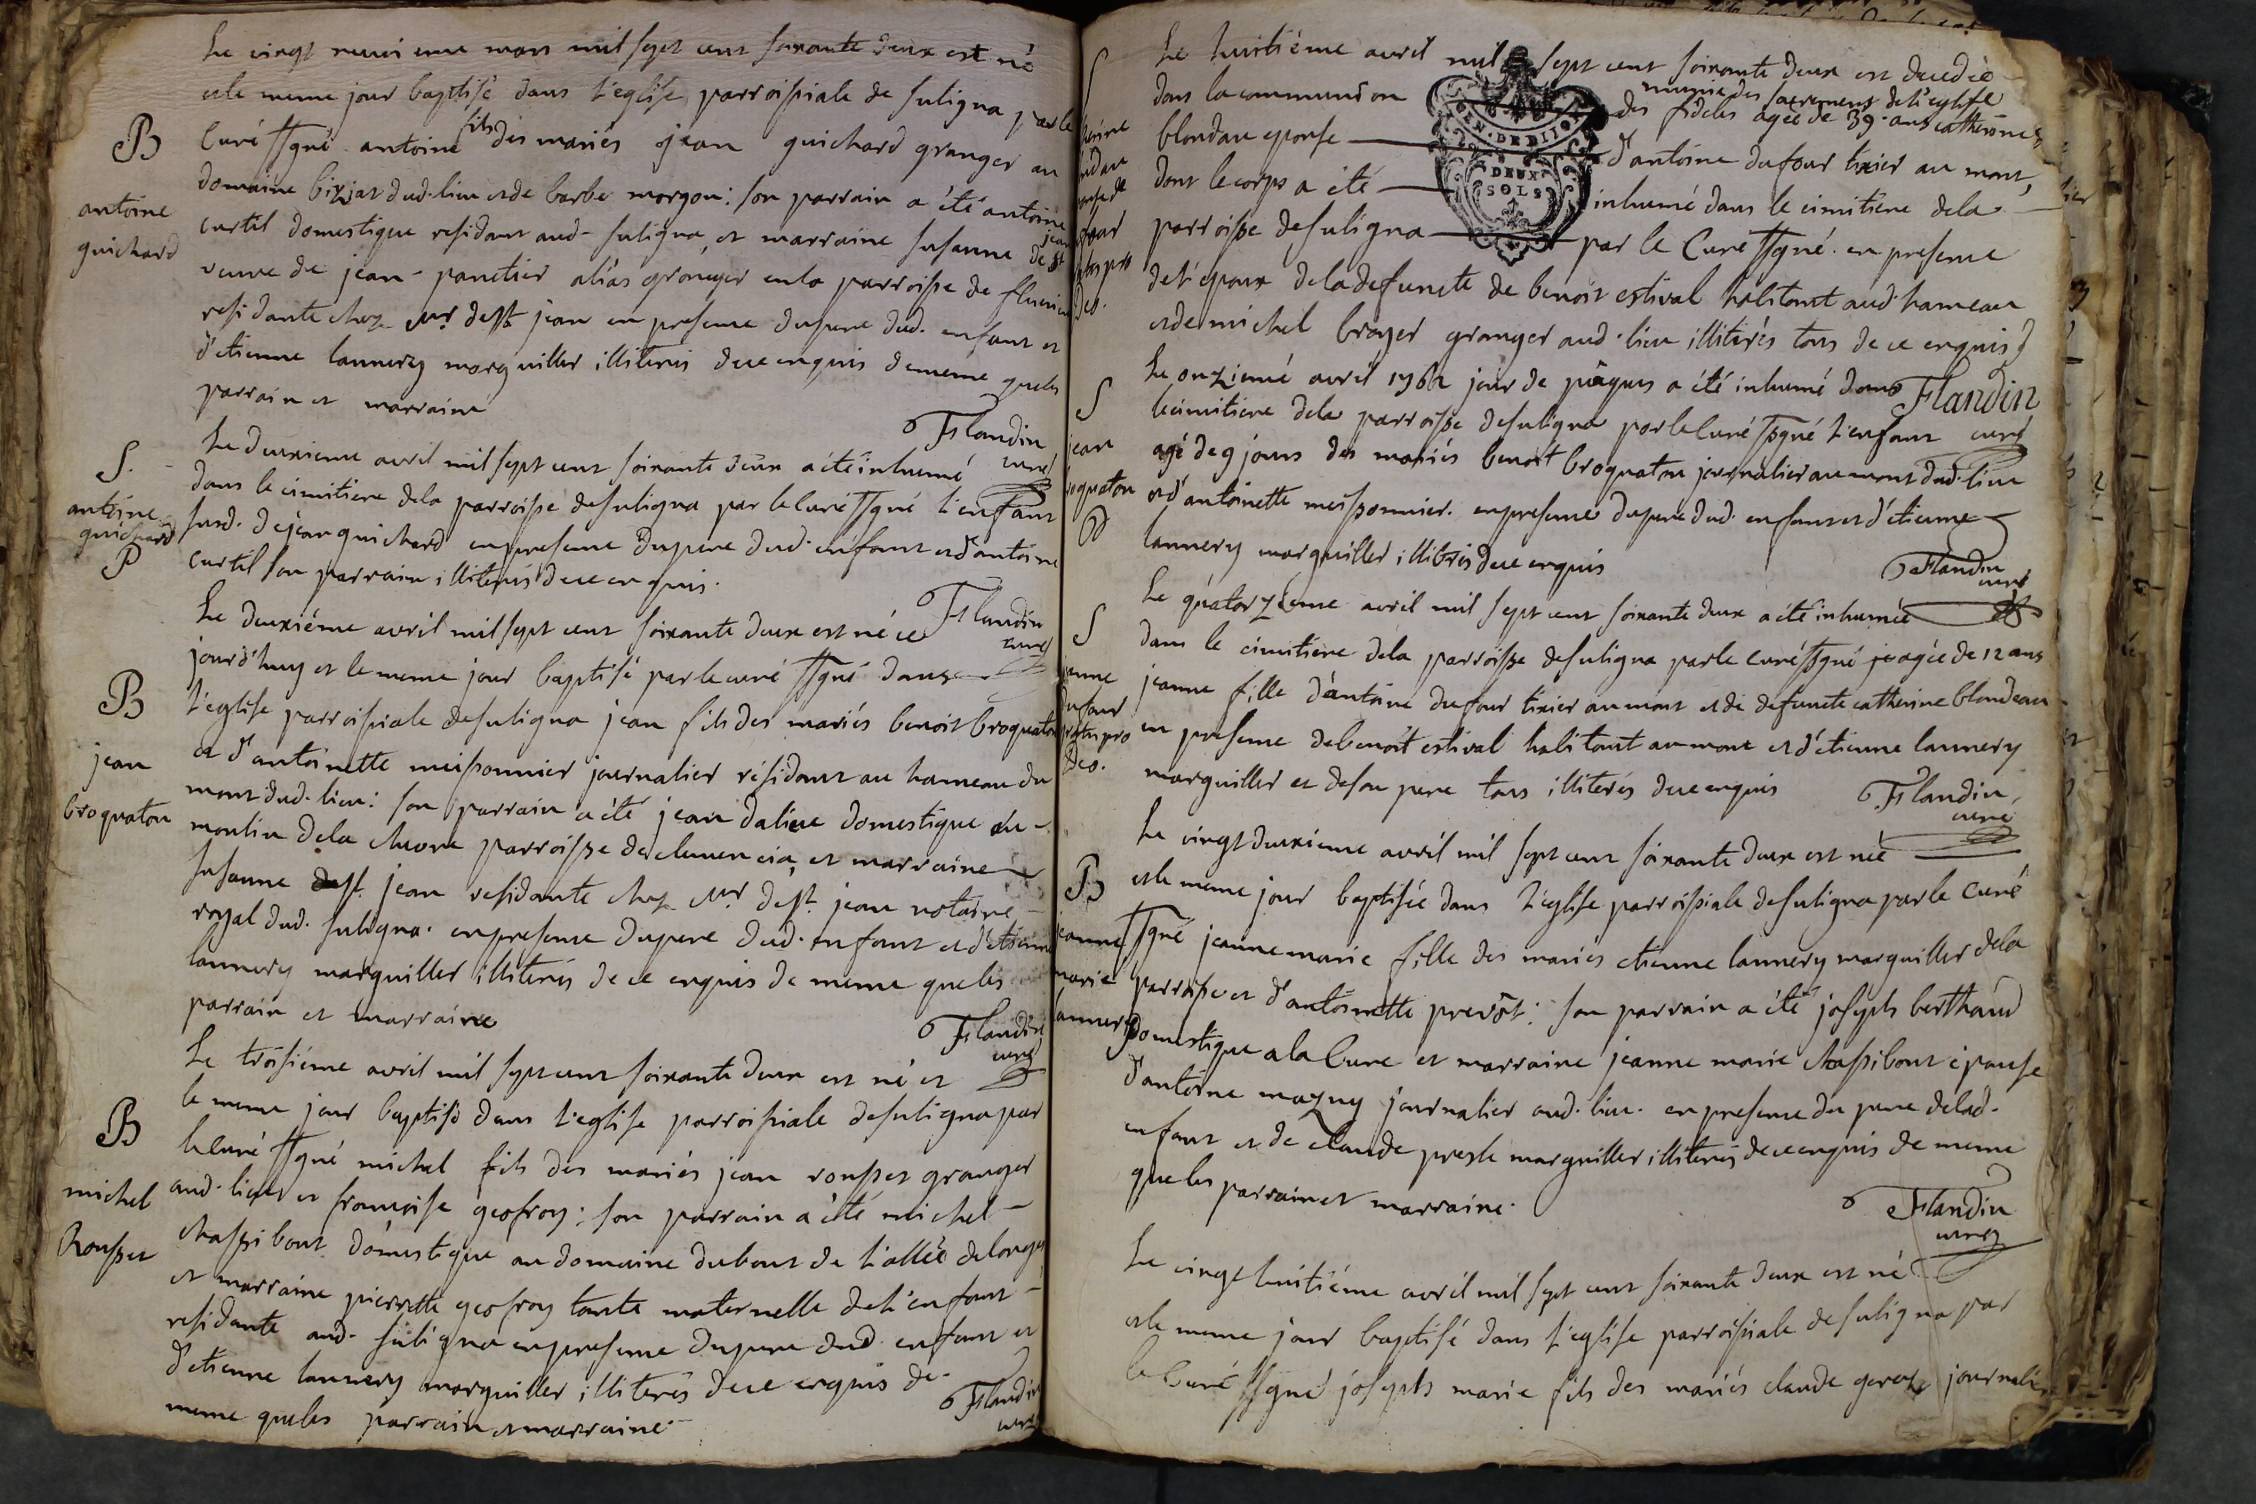 Le vingt neuvieme mars mil sept cent soixante deux est né
et le meme jour baptisé dans l'eglise parroissiale de suligna par le
B
Curé ssgné antoine fils des mariés jean guichard granger au
domaine bizjat dud. lieu et de barbe morgon: son parrain a été antoine
antoine
guichard
curtil domestique residant aud. suligna, et marraine susanne de st jean
veuve de jean panetier alias granger en la parroisse de
residante chez Mr de st. jean en presence du pere dud. enfant et
d'etienne lannery marguiller illiterés de ce enquis de meme que les
parrain et marraine
Flandin
curé
S.
antoine
guichard
P
Le deuxieme avril mil sept cent soixante deux a été inhumé
dans le cimitiere de la parroisse de suligna par le Curé ssgné l'enfant
susd. de jean guichard en presence du pere dud. enfant et d'antoine
curtil son parrain illiterés de ce enquis.
Flandin
curé
Le deuxiéme avril mil sept cent soixante deux est né ce
jourd'huy et le meme jour baptisé par le curé ssgné dans
B
jean
broquaton
l'eglise parroissiale de suligna jean fils des mariés benoit broquaton
et d'antoinette meissonnier journalier résidant au hameau du
mont dud. lieu: son parrain a été jean daliere domestique au
moulin de la chuone parroisse de clemencia, et marraine
susanne de st. jean residante chez Mr. de st. jean notaire
royal dud. suligna. en presence du pere dud. enfant et d'etienne
lannery marguiller illiterés de ce enquis de meme que les
parrain et marraine
Flandin
curé
Le troisiéme avril mil sept cent soixante deux est né et
le meme jour baptisé dans l'eglise parroissiale de suligna par
B
michel
Rousset
le Curé ssgné michel fils des mariés jean rousset granger
aud. lieu et françoise geofroy: son parrain a été michel
chassibout domestique au domaine du bout de l'allée de longe
et marraine pierrette geofroy tante maternelle de l'enfant
residante aud. suligna en presence du pere dud. enfant et
d'etienne lannery marguiller illiterés de ce enquis de
meme que les parrain et marraine
Flandin
curé
S
Le huitiéme avril mil sept cent soixante deux est decedée
munie des sacremens de l'eglise
dans la communion des fideles agée de 39 ans catherine
GEN. DE DIJON
DEUX
SOLS
blondau epouse d'antoine dufour tixier au mont,
dont le corps a été inhumé dans le cimitiere de la
parroisse de suligna par le Curé ssgné en presence
de l'epoux de la defuncte de benoit estival habitant aud. hameau
et de michel broyer granger aud. lieu illitérés tous de ce enquis
Flandin
curé
S
jean
broquaton
Le onzieme avril 1762 jour de pâques a été inhumé dans
le cimitiere de la parroisse de suligna par le Curé ssgné l'enfant
agé de 9 jours des mariés benoit broquaton journalier au mont dud. lieu
et d'antoinette meissonnier. en presence du pere dud. enfant et d'etienne
lannery marguiller illiterés de ce enquis
Flandin
curé
S
jeanne
dufour
gratis pro
deo.
Le quatorzieme avril mil sept cent soixante deux a été inhumée
dans le cimitiere de la parroisse de suligna par le curé ssgné agée de 12 ans
jeanne fille d'antoine dufour tixier au mont et de defuncte catherine blondeau
en presence de benoit estival habitant au mont et d'etienne lannery
marguiller et de son pere tous illiterés de ce enquis
Flandin
curé
Le vingt deuxieme avril mil sept cent soixante deux est née
B
jeanne
marie
lannery
et le meme jour baptisée dans l'eglise parroissiale de suligna par le Curé
ssgné jeanne marie fille des mariés etienne lannery marguiller de la
parroisse et d'antoinette prevôt: son parrain a été joseph berthaud
domestique a la Cure et marraine jeanne marie chassibout épouse
d'antoine mazuy journalier aud. lieu. en presence du pere de lad.
enfant et de claude presle marguiller illiterés de ce enquis de meme
que les parrain et marraine.
Flandin
curé
Le vingt huitiéme avril mil sept cent soixante deux est né
et le meme jour baptisé dans l'eglise parroissiale de suligna par
le Curé ssgné joseph marie fils des mariés claude journalier